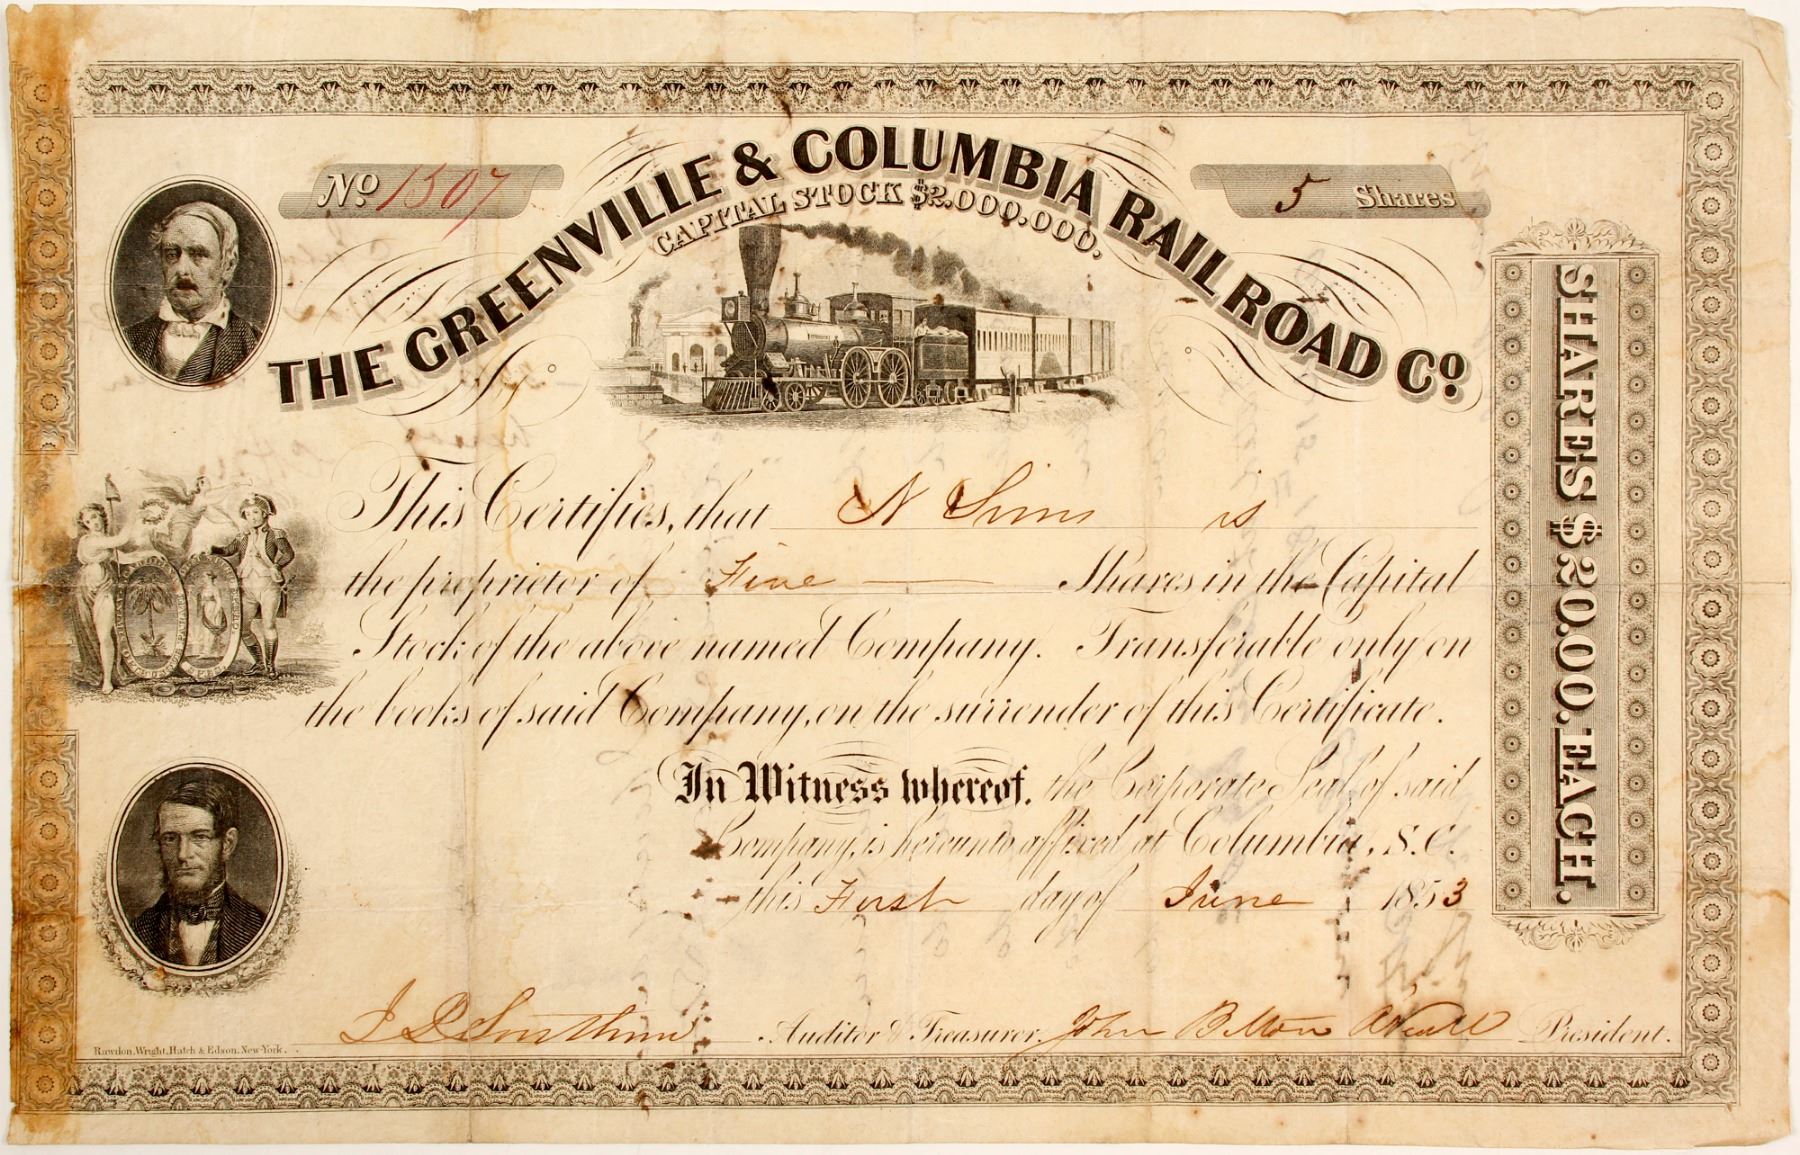 No 1507
THE GREENVILLE & COLUMBIA RAIL ROAD Co.
CAPITAL STOCK $2.000.000.
5 Shares
This Certifies, that N Sims is
the proprietor of Five Shares in the Capital
Stock of the above named Company. Transferable only on
the books of said Company, on the surrender of this Certificate.
In Witness whereof, the Corporate Seal, of said
Company, is hereunto affixed at Columbia, S.C.
this First day of June 1853
Auditor & Treasurer. John Belton O'Neall President.
Rawdon, Wright, Hatch & Edson, New-York.
SHARES $20.00. EACH.